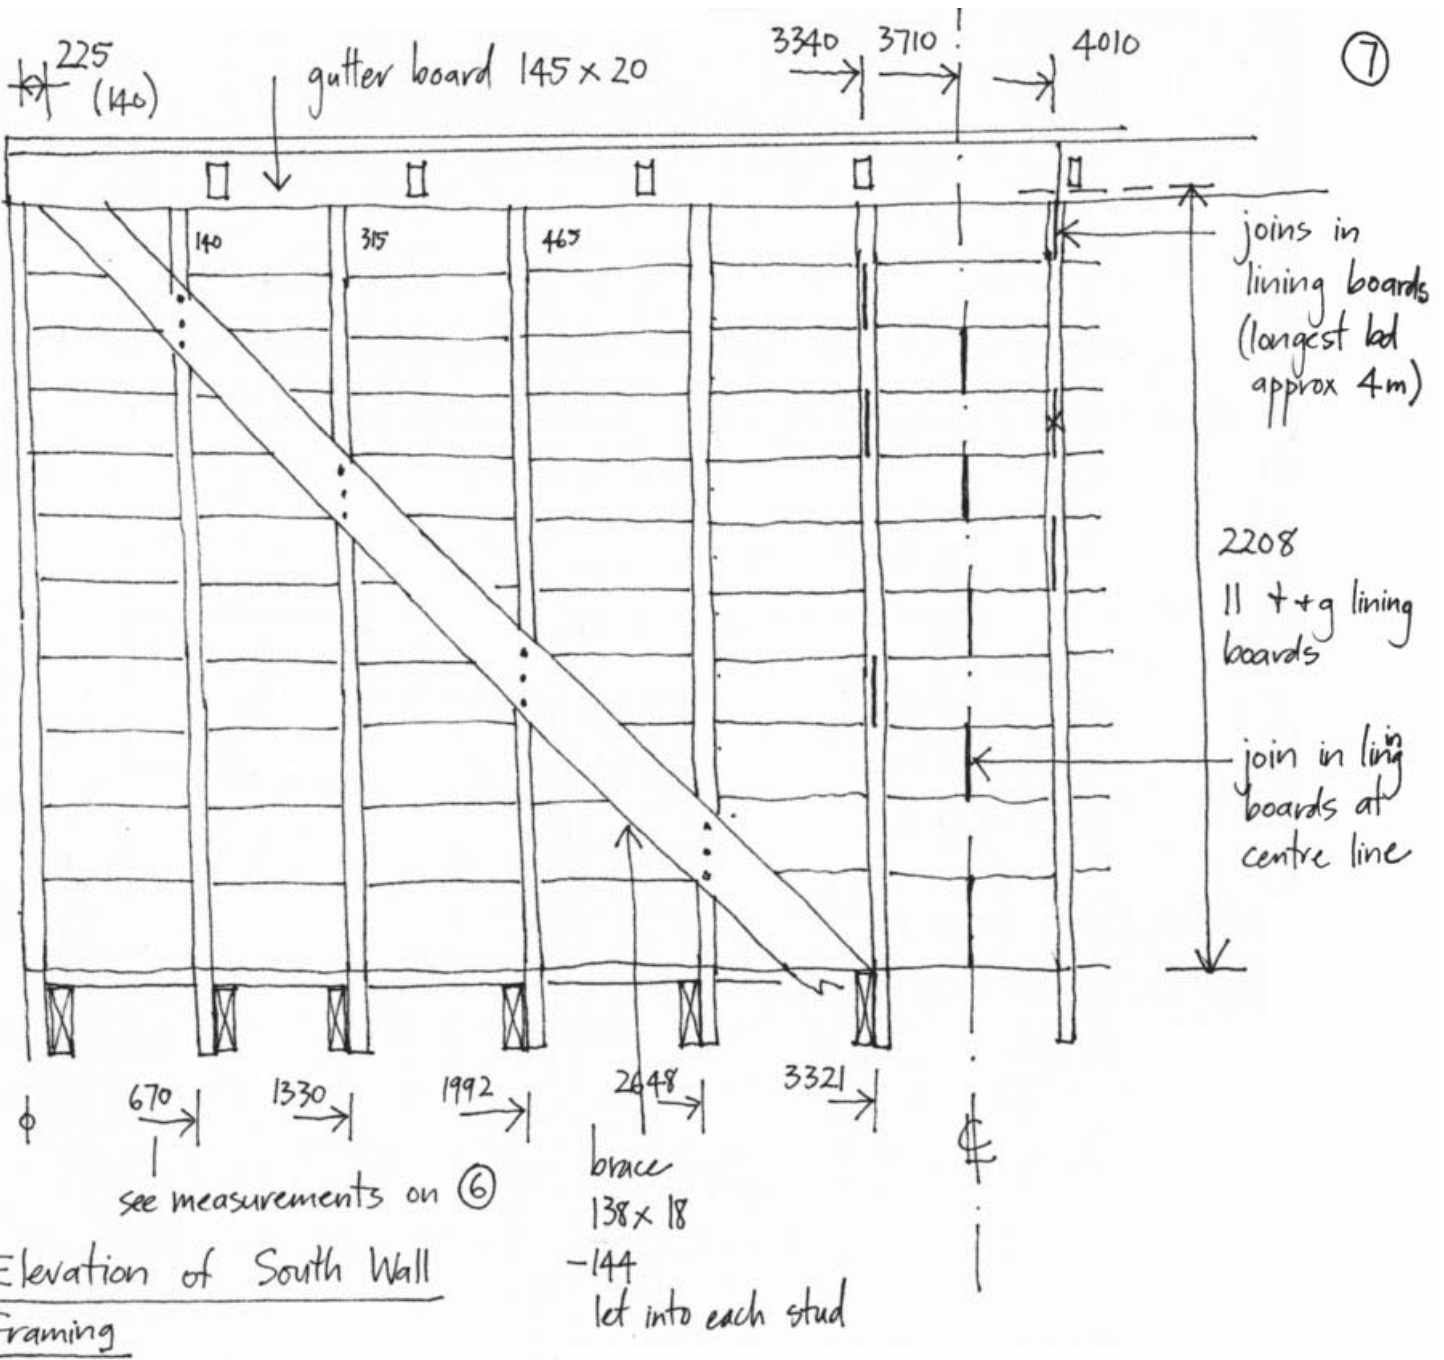 225
(140)
gutter board 145 x 20
3340
3710
4010
7
140
315
465
joins in
lining boards
(longest bd
approx 4m)
2208
11 t+g lining
boards
join in lining
boards at
centre line
670
1330
1992
2648
3321
see measurements on 6
brace
138 x 18
-144
let into each stud
Elevation of South Wall
Framing